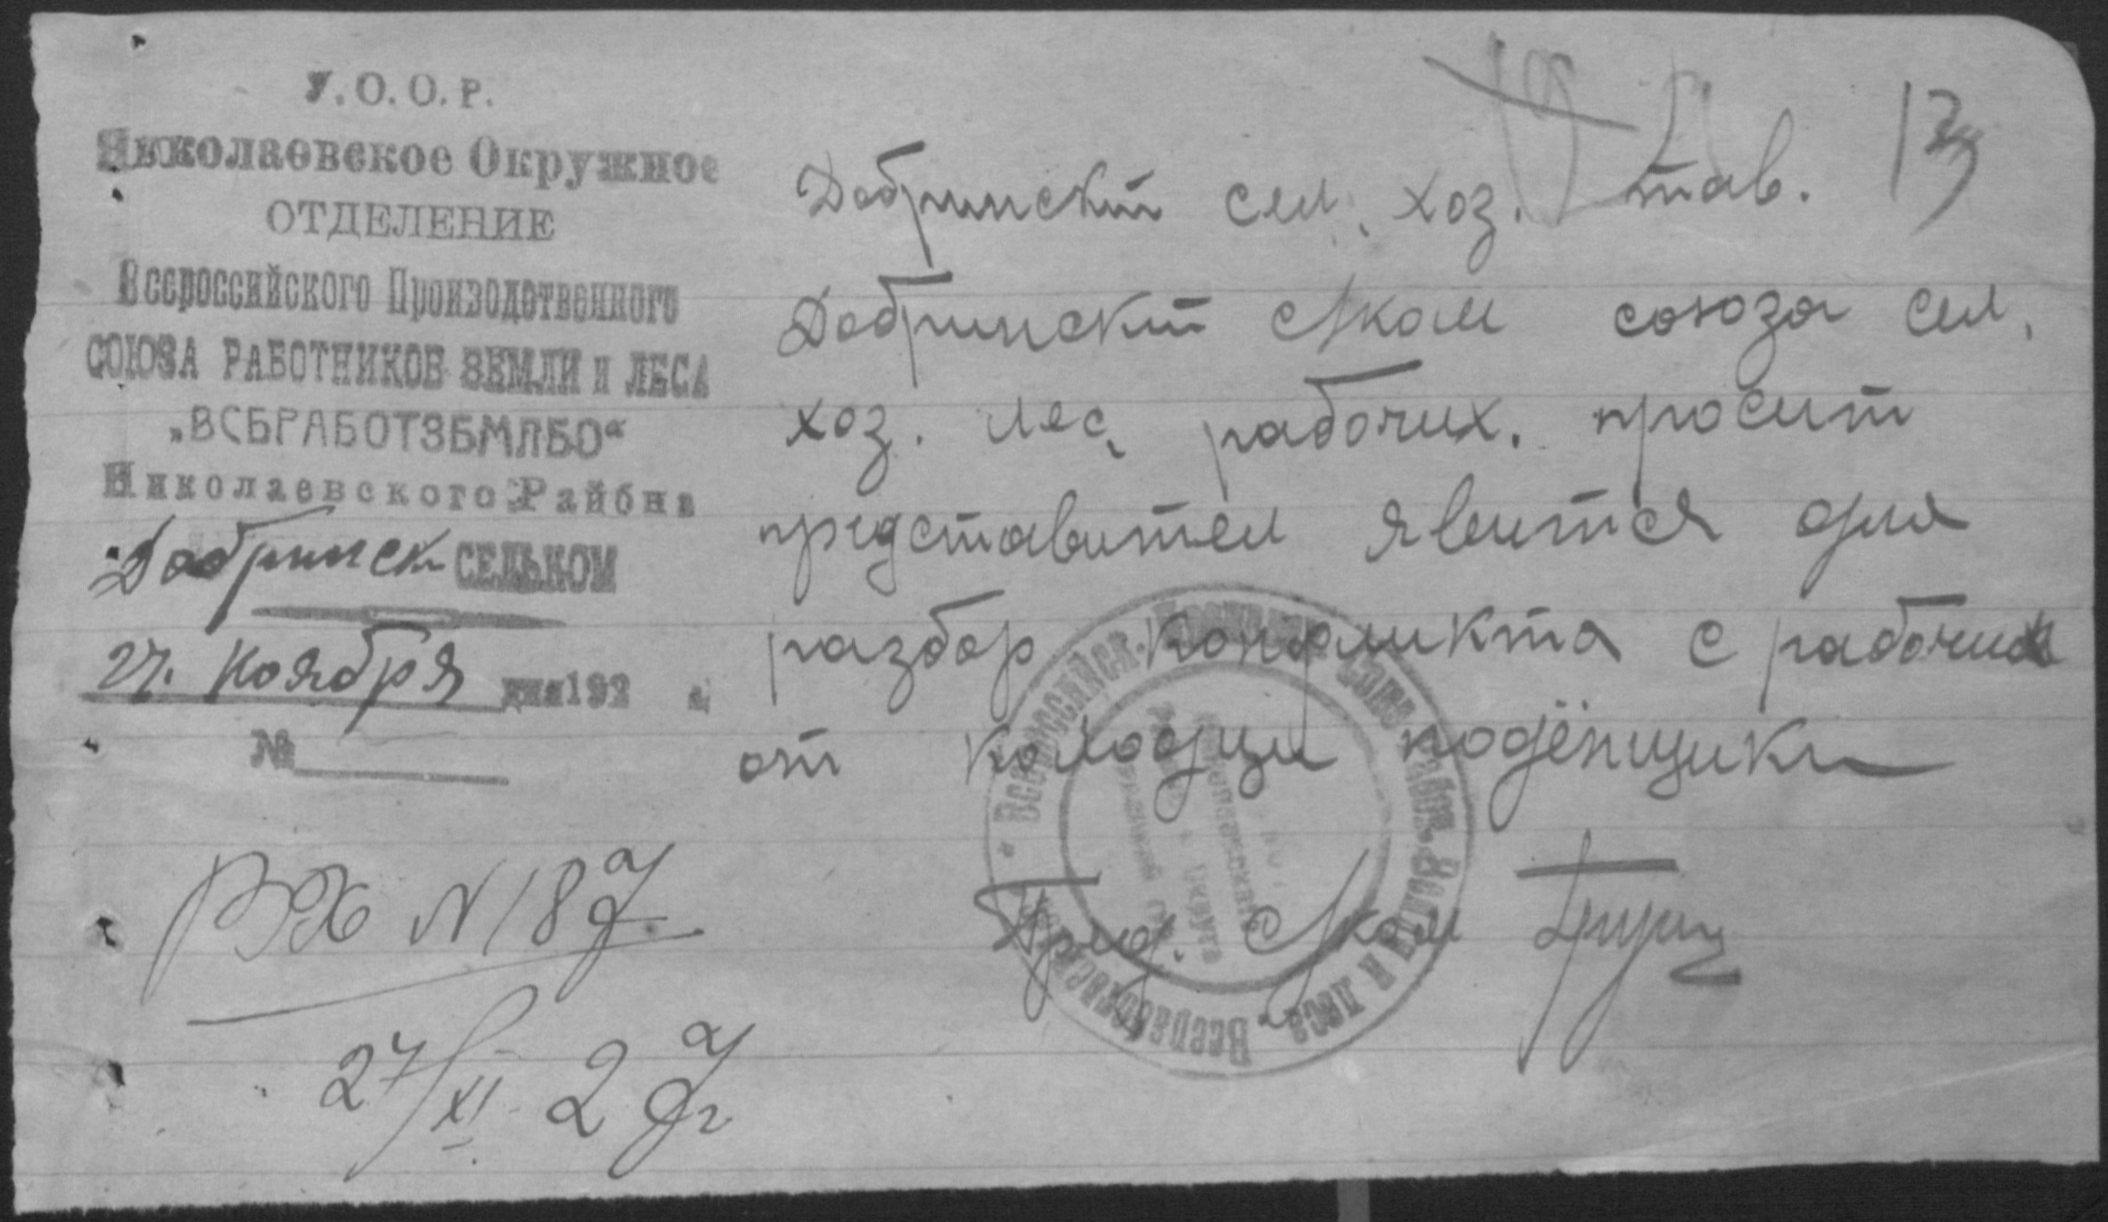 У.О.О.Р.
Николаевское Окружное
ОТДЕЛЕНИЕ
Всероссийского Производственного
СОЮЗА РАБОТНИКОВ ЗЕМЛИ и ЛЕСА
„ВСЕРАБОТЗЕМЛЕС“
Николаевского Района
Добринск СЕЛЬКОМ
27. Ноября дня 192 г.
№
13
Добринскт сел. хоз. тав.
Добринскт с/ком союза сел.
хоз. лес, рабочих. просит
представител явится для
разбор конфликта с рабочих
от колодци подёнщики
Пред. С/ком
ВХ N 187
27/XI 27г
Всероссийск. Союз Рабоч. Земли и Леса